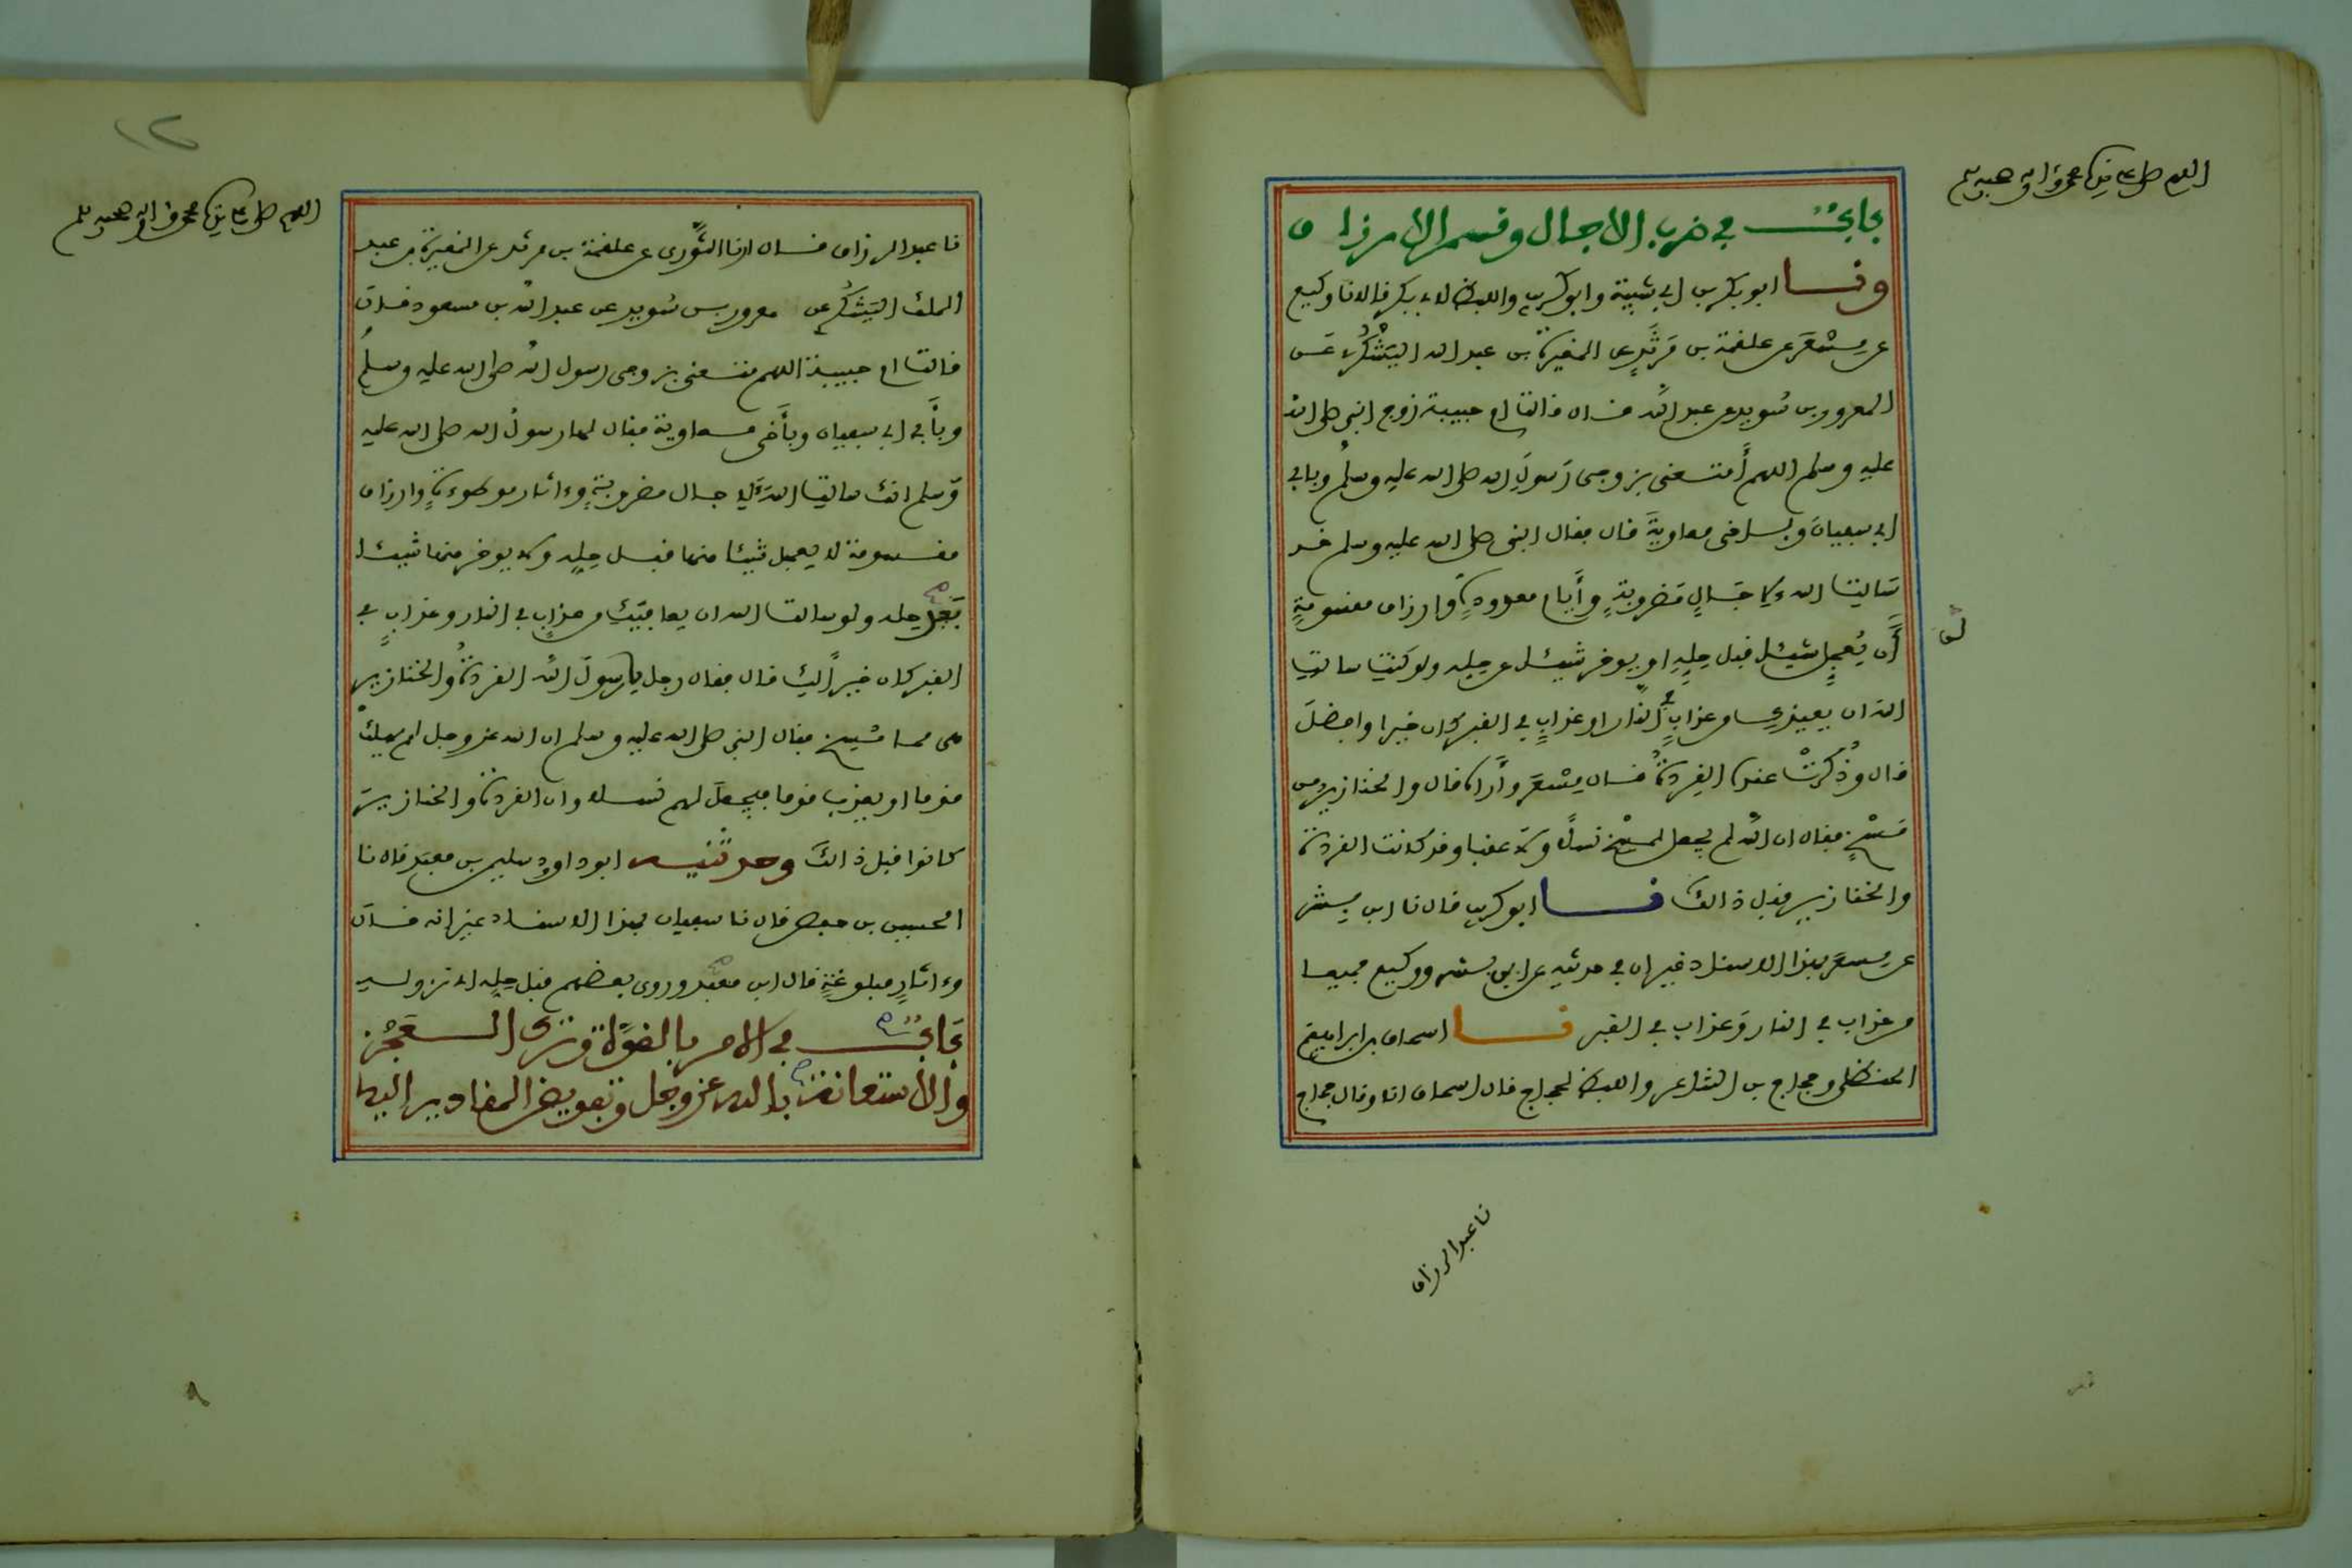 اللهم صل على سيدنا محمد وءاله وصحبه وسلم
باب في ضرب الاجال وقسم الارزاق
ونا ابو بكر بن ابي شيبة وابو كريب واللفظ لابي بكر قالا نا وكيع
عن مسعر عن علقمة بن مرثد عن المغيرة بن عبد الله اليشكري عن
المعرور بن سويد عن عبد الله قال قالت ام حبيبة زوج النبي صلى الله
عليه وسلم اللهم أمتعني بزوجي رسول الله صلى الله عليه وسلم وبابي
ابي سفيان وباخي معاوية قال فقال النبي صلى الله عليه وسلم قد
سالت الله لاجال مضروبة وأيام معدودة وارزاق مقسومة
لن يعجل شيئا قبل حله او يوخر شيئا عن حله ولو كنت سالت
الله ان يعيذك من عذاب في النار او عذاب في القبر كان خيرا وافضل
قال وذكرت عنده القردة قال مسعر وأراه قال والخنازير من
مسخ فقال ان الله لم يجعل لمسخ نسلا ولا عقبا وقد كانت القردة
والخنازير قبل ذالك نا ابو كريب قال نا ابن بشر
عن مسعر بهذا الاسناد غير ان في حديثه عن ابن بشر ووكيع جميعا
من عذاب في النار وعذاب في القبر نا اسحاق بن ابراهيم
الحنظلي وحجاج بن الشاعر واللفظ لحجاج قال اسحاق انا وقال حجاج
نا عبد الرزاق
١٢
اللهم صل على سيدنا محمد وءاله وصحبه وسلم
نا عبد الرزاق قال انا الثوري عن علقمة بن مرثد عن المغيرة بن عبد
الملك اليشكري عن معرور بن سويد عن عبد الله بن مسعود قال
قالت ام حبيبة اللهم متعني بزوجي رسول الله صلى الله عليه وسلم
وبأبي ابي سفيان وبأخي معاوية فقال لها رسول الله صلى الله عليه
وسلم انك سالت الله لاجال مضروبة وءاثار موطوءة وارزاق
مقسومة لا يعجل شيئا منها قبل حله ولا يوخر منها شيئا
بعد حله ولو سالت الله ان يعافيك من عذاب في النار وعذاب في
القبر كان خيرا لك قال فقال رجل يا رسول الله القردة والخنازير
هي مما مسخ فقال النبي صلى الله عليه وسلم ان الله عز وجل لم يهلك
قوما او يعذب قوما فيجعل لهم نسلا وان القردة والخنازير
كانوا قبل ذالك وحدثنيه ابو داود سليمن بن معبد قال نا
الحسين بن حفص قال نا سفيان بهذا الاسناد غير انه قال
وءاثار مبلوغة قال ابن معبد وروى بعضهم قبل حله اي نزوله
باب في الامر بالقوة وترك العجز
والاستعانة بالله عز وجل وتفويض المقادير اليه